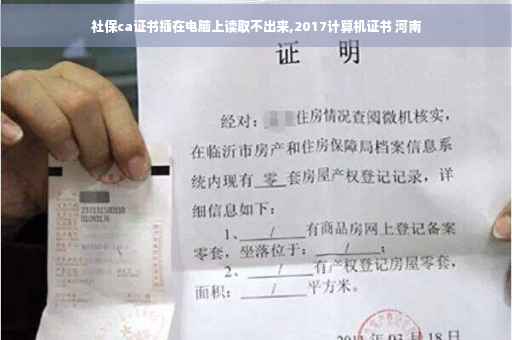 社保ca证书插在电脑上读取不出来,2017计算机证书 河南
证 明
经对: 住房情况查阅微机核实,
在临沂市房产和住房保障局档案信息系
统内现有 零 套房屋产权登记记录，详
细信息如下：
1、 / 有商品房网上登记备案
零套，坐落位于： / ；
2、 / 有产权登记房屋零套，
面积： / 平方米。